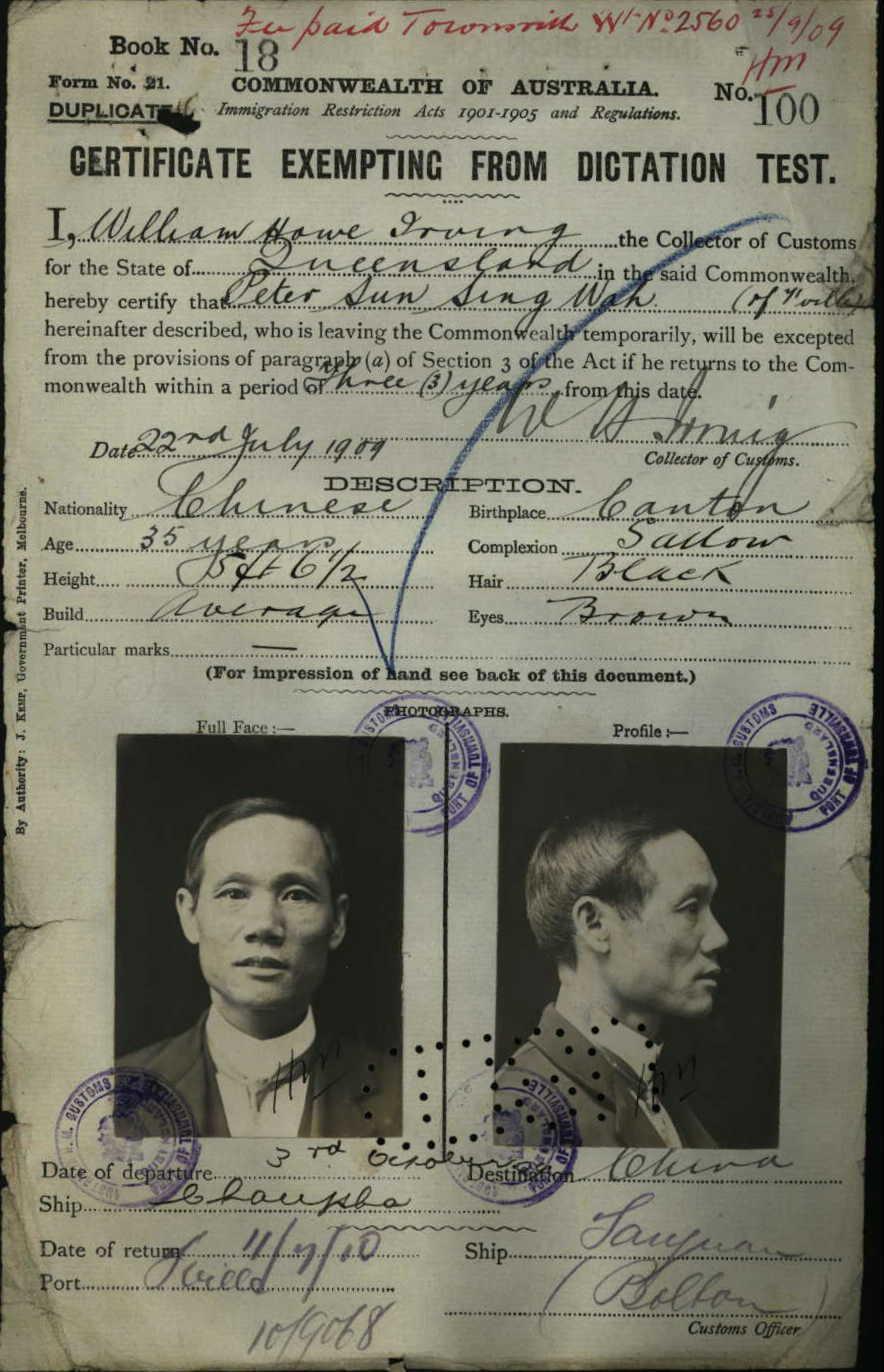 Fee paid Townsville Wt No 2560 25/9/09
Book No. 18
HM
Form No. 21. COMMONWEALTH OF AUSTRALIA. No. 100
DUPLICATE Immigration Restriction Acts 1901-1905 and Regulations.
CERTIFICATE EXEMPTING FROM DICTATION TEST.
I, William Howe Irving the Collector of Customs
for the State of Queensland in the said Commonwealth,
hereby certify that Peter Sun Sing Wah (of T'ville)
hereinafter described, who is leaving the Commonwealth temporarily, will be excepted
from the provisions of paragraph (a) of Section 3 of the Act if he returns to the Com-
monwealth within a period of Three (3) years from this date.
W H Irving
Date 22nd July 1909 Collector of Customs.
DESCRIPTION.
Nationality Chinese Birthplace Canton
Age 35 years Complexion Sallow
Height 5 ft 6 1/2 Hair Black
Build Average Eyes Brown
Particular marks —
(For impression of hand see back of this document.)
PHOTOGRAPHS.
Full Face :— Profile :—
H.M. CUSTOMS PORT OF TOWNSVILLE QUEENSLAND
H.M. CUSTOMS PORT OF TOWNSVILLE QUEENSLAND
By Authority: J. KEMP, Government Printer, Melbourne.
HM HM
H.M. CUSTOMS PORT OF TOWNSVILLE QUEENSLAND
H.M. CUSTOMS PORT OF TOWNSVILLE QUEENSLAND
Date of departure 3rd October Destination China
Ship
Date of return 11/7/10 Ship Taiyuan
Port T'ville (Bolton)
Customs Officer
10/9068